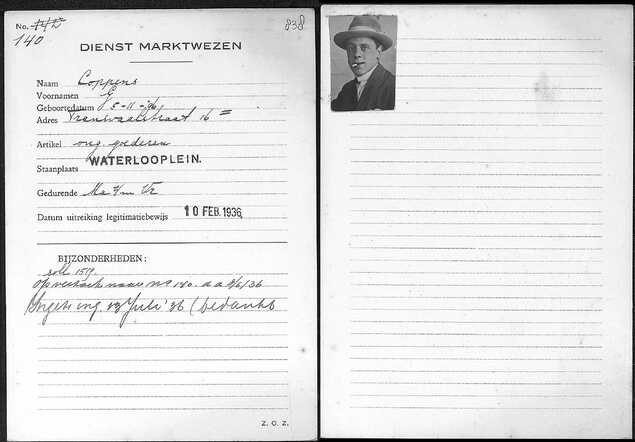 No. 142
838
140
DIENST MARKTWEZEN
Naam Coppens
Voornamen G
Geboortedatum 5-11-
Adres 16
Artikel ong. goederen
Staanplaats WATERLOOPLEIN.
Gedurende Ma t/m Vr
Datum uitreiking legitimatiebewijs 10 FEB. 1936.
BIJZONDERHEDEN:
soll 1519.
Op verzoek naar no 140. d.d. /36
Ingetr. ing. 13 Juli '36 (bedankt
Z. O. Z.